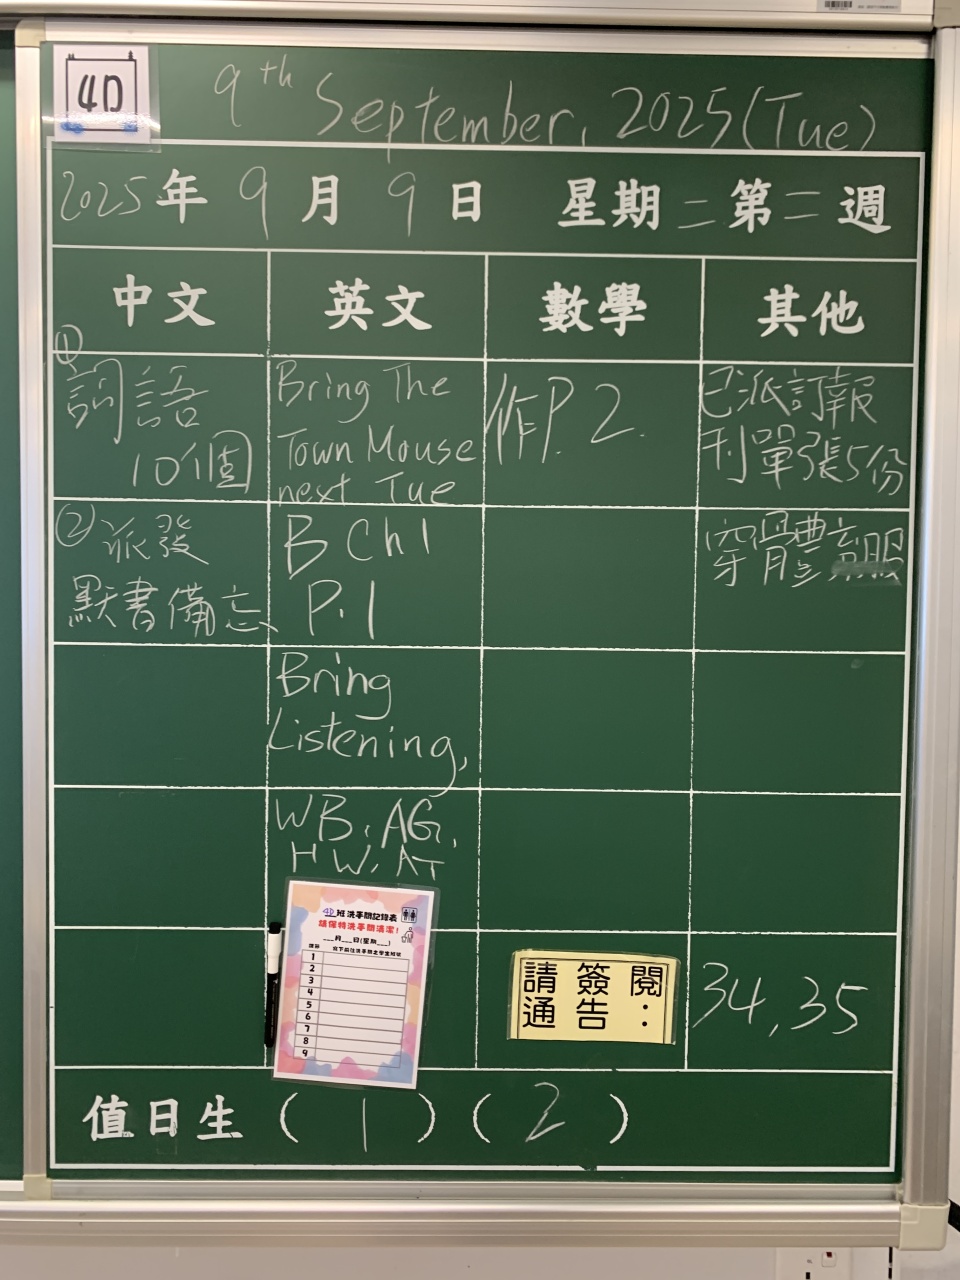 4D
9th September, 2025 (Tue)
2025年9月9日 星期二第二週
中文
英文
數學
其他
① 詞語
10個
Bring The
Town Mouse
next Tue
作P.2.
已派訂報
刊單張5份
② 派發
默書備忘
B Ch1
P.1
穿體育服
Bring
Listening,
WB, AG,
HW, AT
4D班洗手間記錄表
請保持洗手間清潔!
__月__日(星期__)
1
2
3
4
5
6
7
8
9
請簽閱
通告:
34,35
值日生 (1) (2)